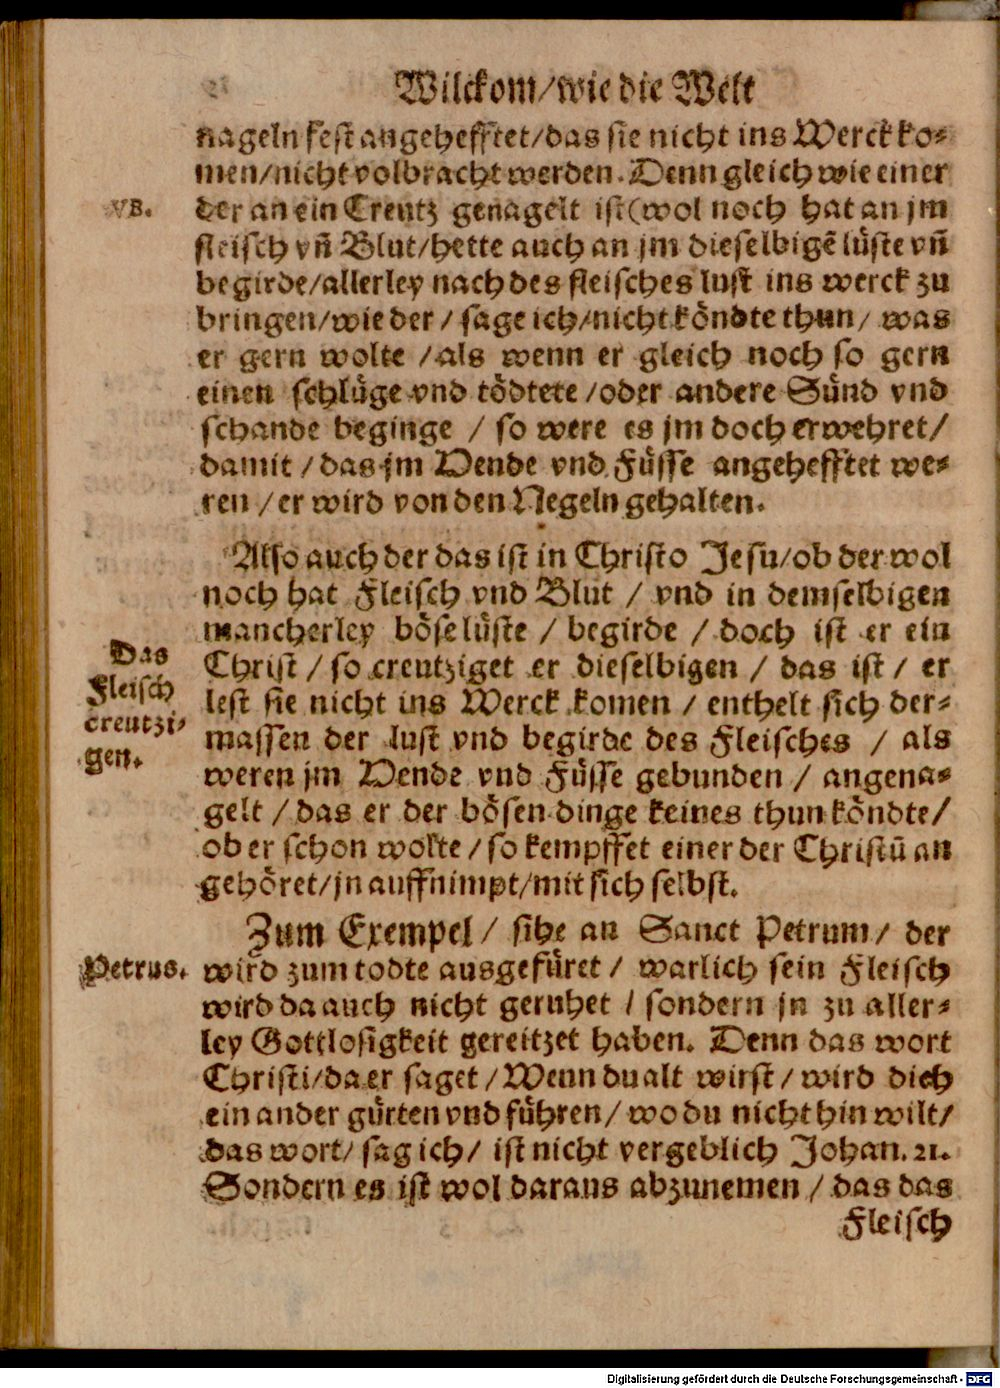 Wilckom/wie die Welt
nageln fest angehefftet/das sie nicht ins Werck ko-
men/nicht volbracht werden. Denn gleich wie einer
VB.
der an ein Creutz genagelt ist (wol noch hat an jm
fleisch vñ Blut/hette auch an jm dieselbigẽ lüste vñ
begirde/allerley nach des fleisches lust ins werck zu
bringen/wie der/sage ich/nicht köndte thun/was
er gern wolte/als wenn er gleich noch so gern
einen schlüge vnd tödtete/oder andere Sünd vnd
schande beginge/so were es jm doch erwehret/
damit/das jm Hende vnd Füsse angehefftet we-
ren/er wird von den Negeln gehalten.
Also auch der das ist in Christo Jesu/ob der wol
noch hat Fleisch vnd Blut/vnd in demselbigen
mancherley böse lüste/begirde/doch ist er ein
Das
Fleisch
creutzi-
gen.
Christ/so creutziget er dieselbigen/das ist/er
lest sie nicht ins Werck komen/enthelt sich der-
massen der lust vnd begirde des Fleisches/als
weren jm Hende vnd Füsse gebunden/angena-
gelt/das er der bösen dinge keines thun köndte/
ob er schon wolte/so kempffet einer der Christū an
gehöret/jn auffnimpt/mit sich selbst.
Zum Exempel/sihe an Sanct Petrum/der
Petrus.
wird zum todte ausgefüret/warlich sein Fleisch
wird da auch nicht geruhet/sondern jn zu aller-
ley Gottlosigkeit gereitzet haben. Denn das wort
Christi/da er saget/Wenn du alt wirst/wird dich
ein ander gürten vnd führen/wo du nicht hin wilt/
das wort/sag ich/ist nicht vergeblich Johan. 21.
Sondern es ist wol daraus abzunemen/das das
Fleisch
Digitalisierung gefördert durch die Deutsche Forschungsgemeinschaft - DFG